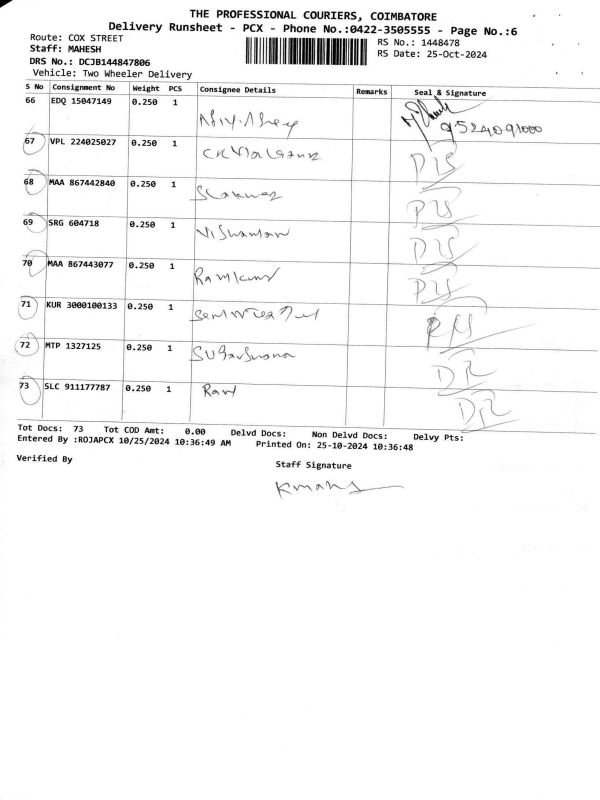 THE PROFESSIONAL COURIERS, COIMBATORE
Delivery Runsheet - PCX - Phone No.:0422-3505555 - Page No.:6
Route: COX STREET
RS No.: 1448478
Staff: MAHESH
RS Date: 25-Oct-2024
DRS No.: DCJB144847806
Vehicle: Two Wheeler Delivery
S No Consignment No Weight PCS Consignee Details Remarks Seal & Signature
66 EDQ 15047149 0.250 1
9524091000
67 VPL 224025027 0.250 1
68 MAA 867442840 0.250 1
69 SRG 604718 0.250 1
70 MAA 867443077 0.250 1 Ramkumar
71 KUR 3000100133 0.250 1
72 MTP 1327125 0.250 1
73 SLC 911177787 0.250 1 Ravi
Tot Docs: 73 Tot COD Amt: 0.00 Delvd Docs: Non Delvd Docs: Delvy Pts:
Entered By :ROJAPCX 10/25/2024 10:36:49 AM Printed On: 25-10-2024 10:36:48
Verified By
Staff Signature